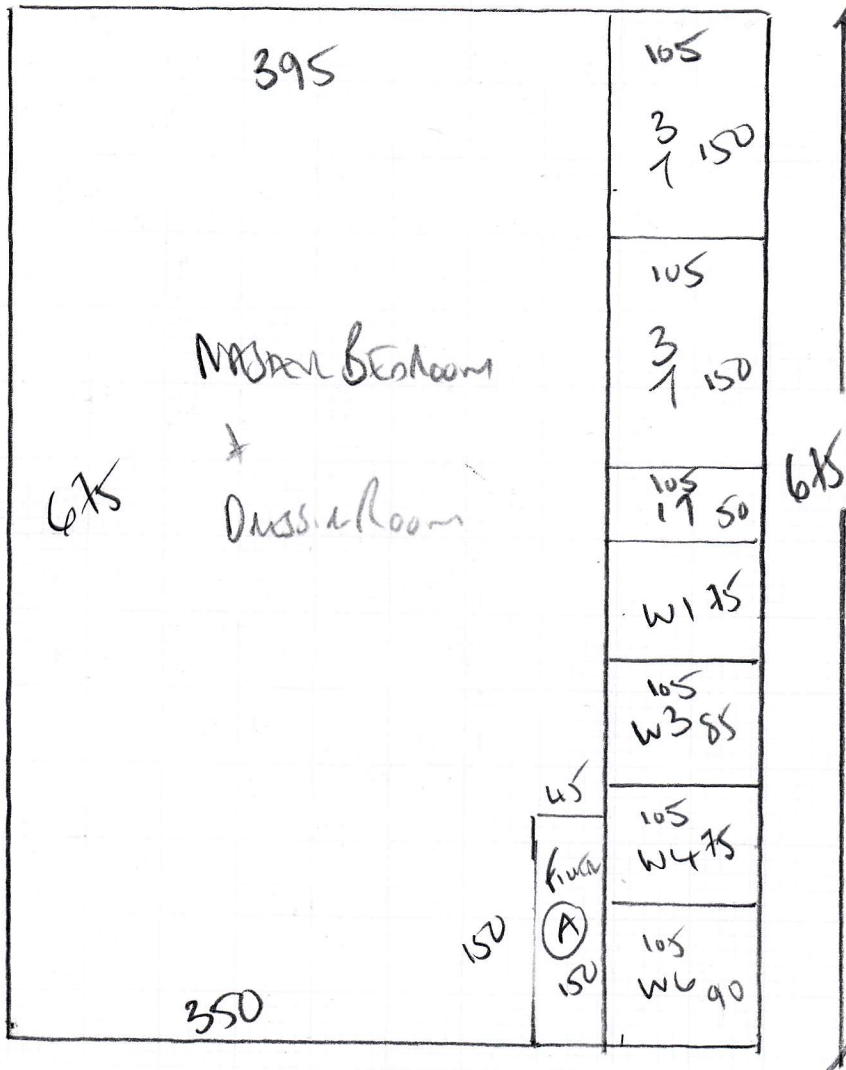 395
105
3
1 150
105
3
1 150
MASTER BEDROOM
+
DRESSING ROOM
675
105
19 50
675
W1 75
105
W3 85
45
105
W4 75
A
150
150
105
90
350